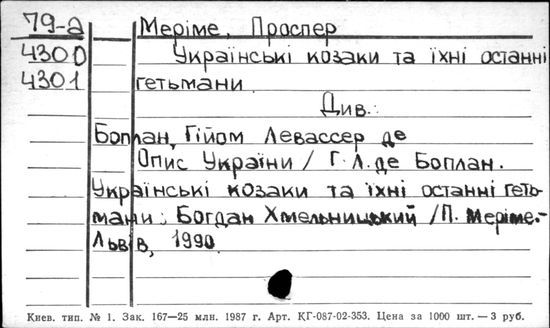 79-а Меріме, Проспер
4300 Українські козаки та їхні останні
4301 гетьмани
Див.:
Боплан, Гійом Левассер де
Опис України / Г. Л. де Боплан.
Українські козаки та їхні останні геть-
мани ; Богдан Хмельницький / П. Меріме.-
Львів, 1990.
Киев. тип. № 1. Зак. 167—25 млн. 1987 г. Арт. КГ-087-02-353. Цена за 1000 шт. — 3 руб.